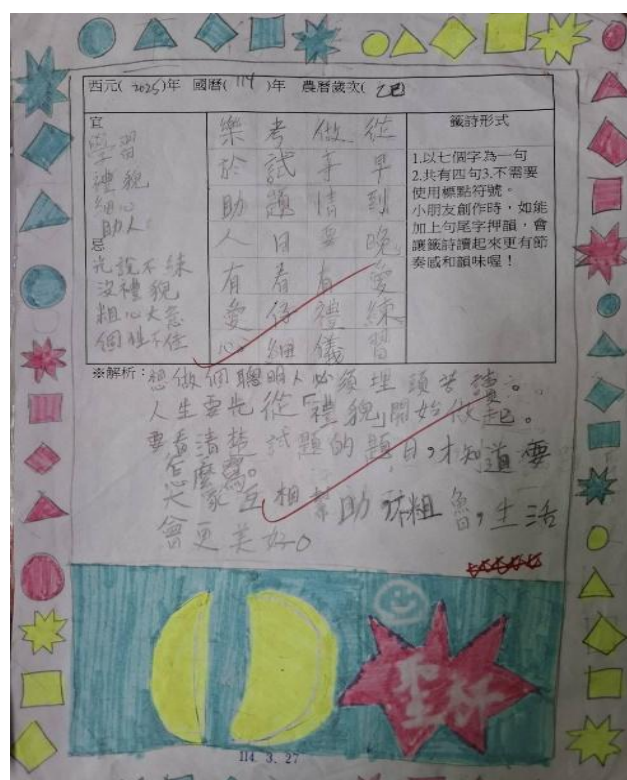 西元(2025)年 國曆(114)年 農曆歲次(乙巳)
宜
學習
禮貌
細心
助人
忌
光說不練
沒禮貌
粗心大意
個性不佳
從早到晚愛練習
做事情要有禮儀
考試題目看仔細
樂於助人有愛心
籤詩形式
1.以七個字為一句
2.共有四句3.不需要
使用標點符號。
小朋友創作時,如能
加上句尾字押韻,會
讓籤詩讀起來更有節
奏感和韻味喔!
※解析:想做個聰明人必須埋頭苦讀。
人生要先從「禮貌」開始做起。
要看清楚試題的題目,才知道要
怎麼寫。
大家互相幫助不粗魯,生活
會更美好。
聖杯
114 3. 27